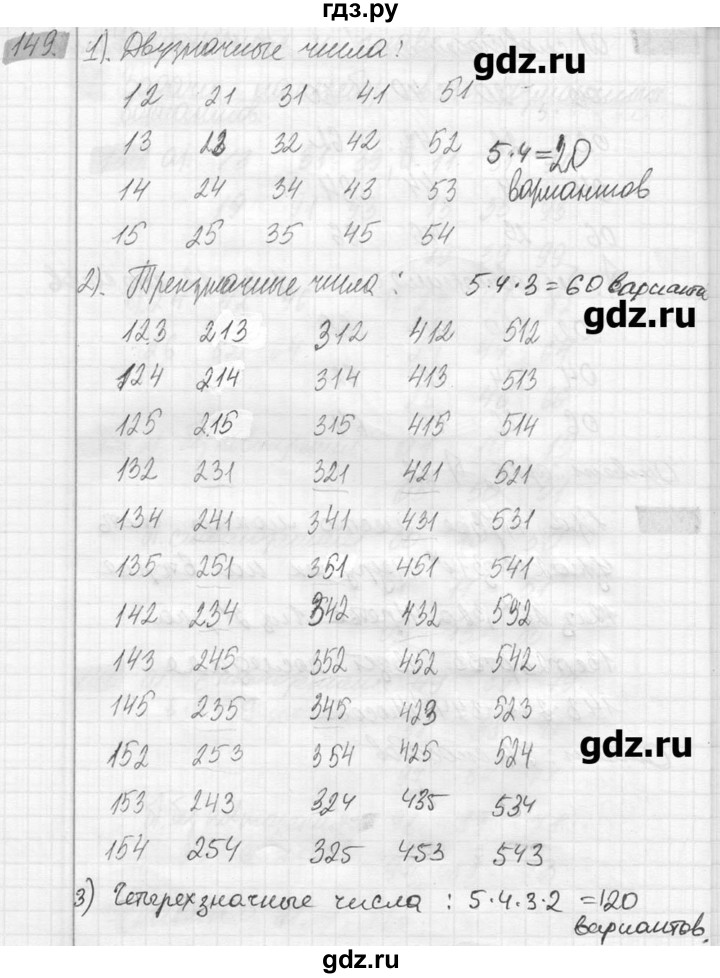 гдз.ру
149. 1). Двузначные числа:
gdz.ru
12 21 31 41 51
13 23 32 42 52 5·4=20
14 24 34 43 53 вариантов
15 25 35 45 54
2). Трехзначные числа: 5·4·3=60 варианта
gdz.ru
123 213 312 412 512
124 214 314 413 513
125 215 315 415 514
132 231 321 421 521
134 241 341 431 531
135 251 351 451 541
142 234 342 432 532
143 245 352 452 542
145 235 345 423 523
152 253 354 425 524
gdz.ru
153 243 324 435 534
154 254 325 453 543
3) Четырехзначные числа: 5·4·3·2 =120
вариантов.
gdz.ru